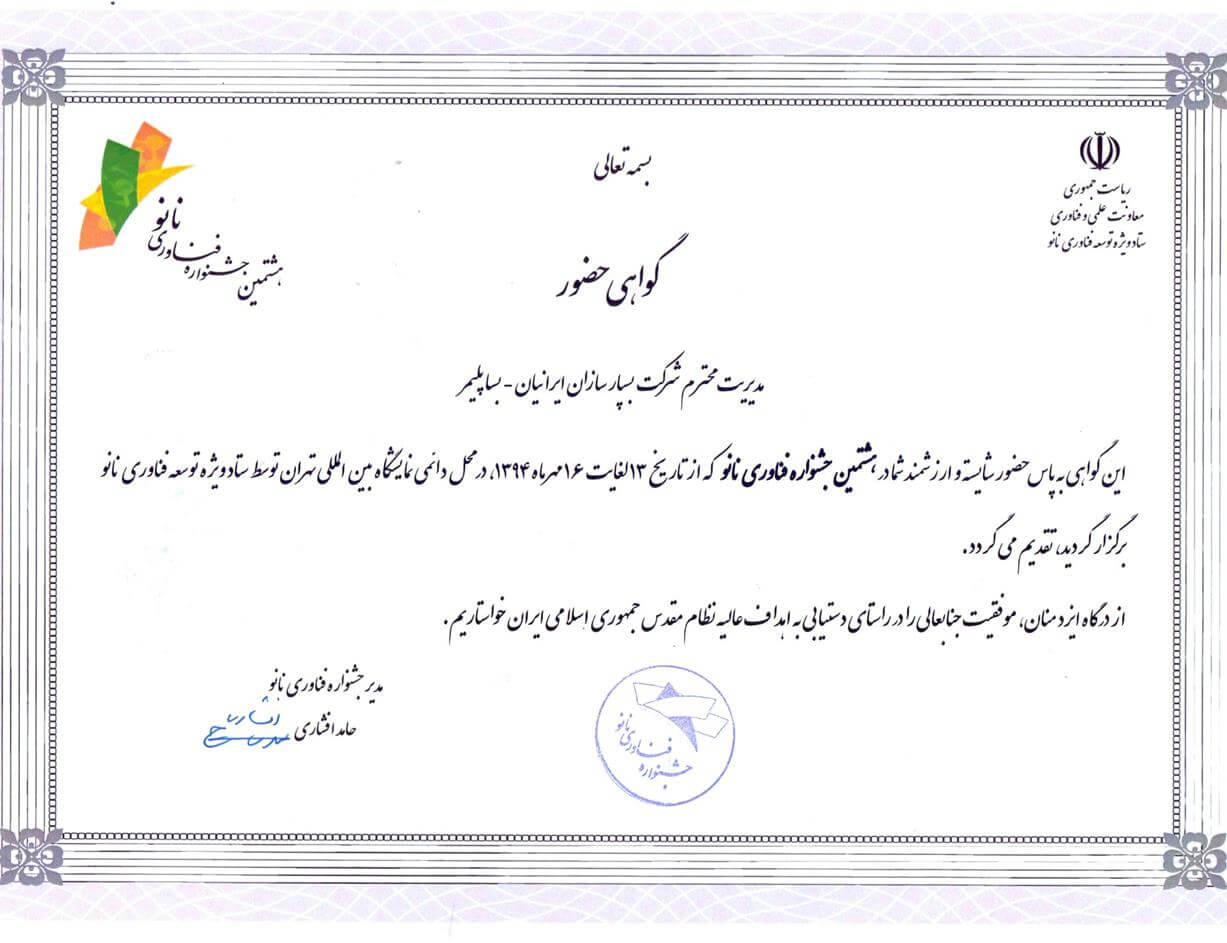 بسمه تعالی
ریاست جمهوری
معاونت علمی و فناوری
ستاد ویژه توسعه فناوری نانو
هشتمین جشنواره فناوری نانو
گواهی حضور
مدیریت محترم شرکت بسپار سازان ایرانیان - بسا پلیمر
این گواهی به پاس حضور شایسته و ارزشمند شما در هشتمین جشنواره فناوری نانو که از تاریخ ۱۳ لغایت ۱۶ مهر ماه ۱۳۹۴، در محل دائمی نمایشگاه بین المللی تهران توسط ستاد ویژه توسعه فناوری نانو
برگزار گردید، تقدیم می گردد.
از درگاه ایزد منان، موفقیت جنابعالی را در راستای دستیابی به اهداف عالیه نظام مقدس جمهوری اسلامی ایران خواستاریم.
مدیر جشنواره فناوری نانو
حامد افشاری
جشنواره فناوری نانو